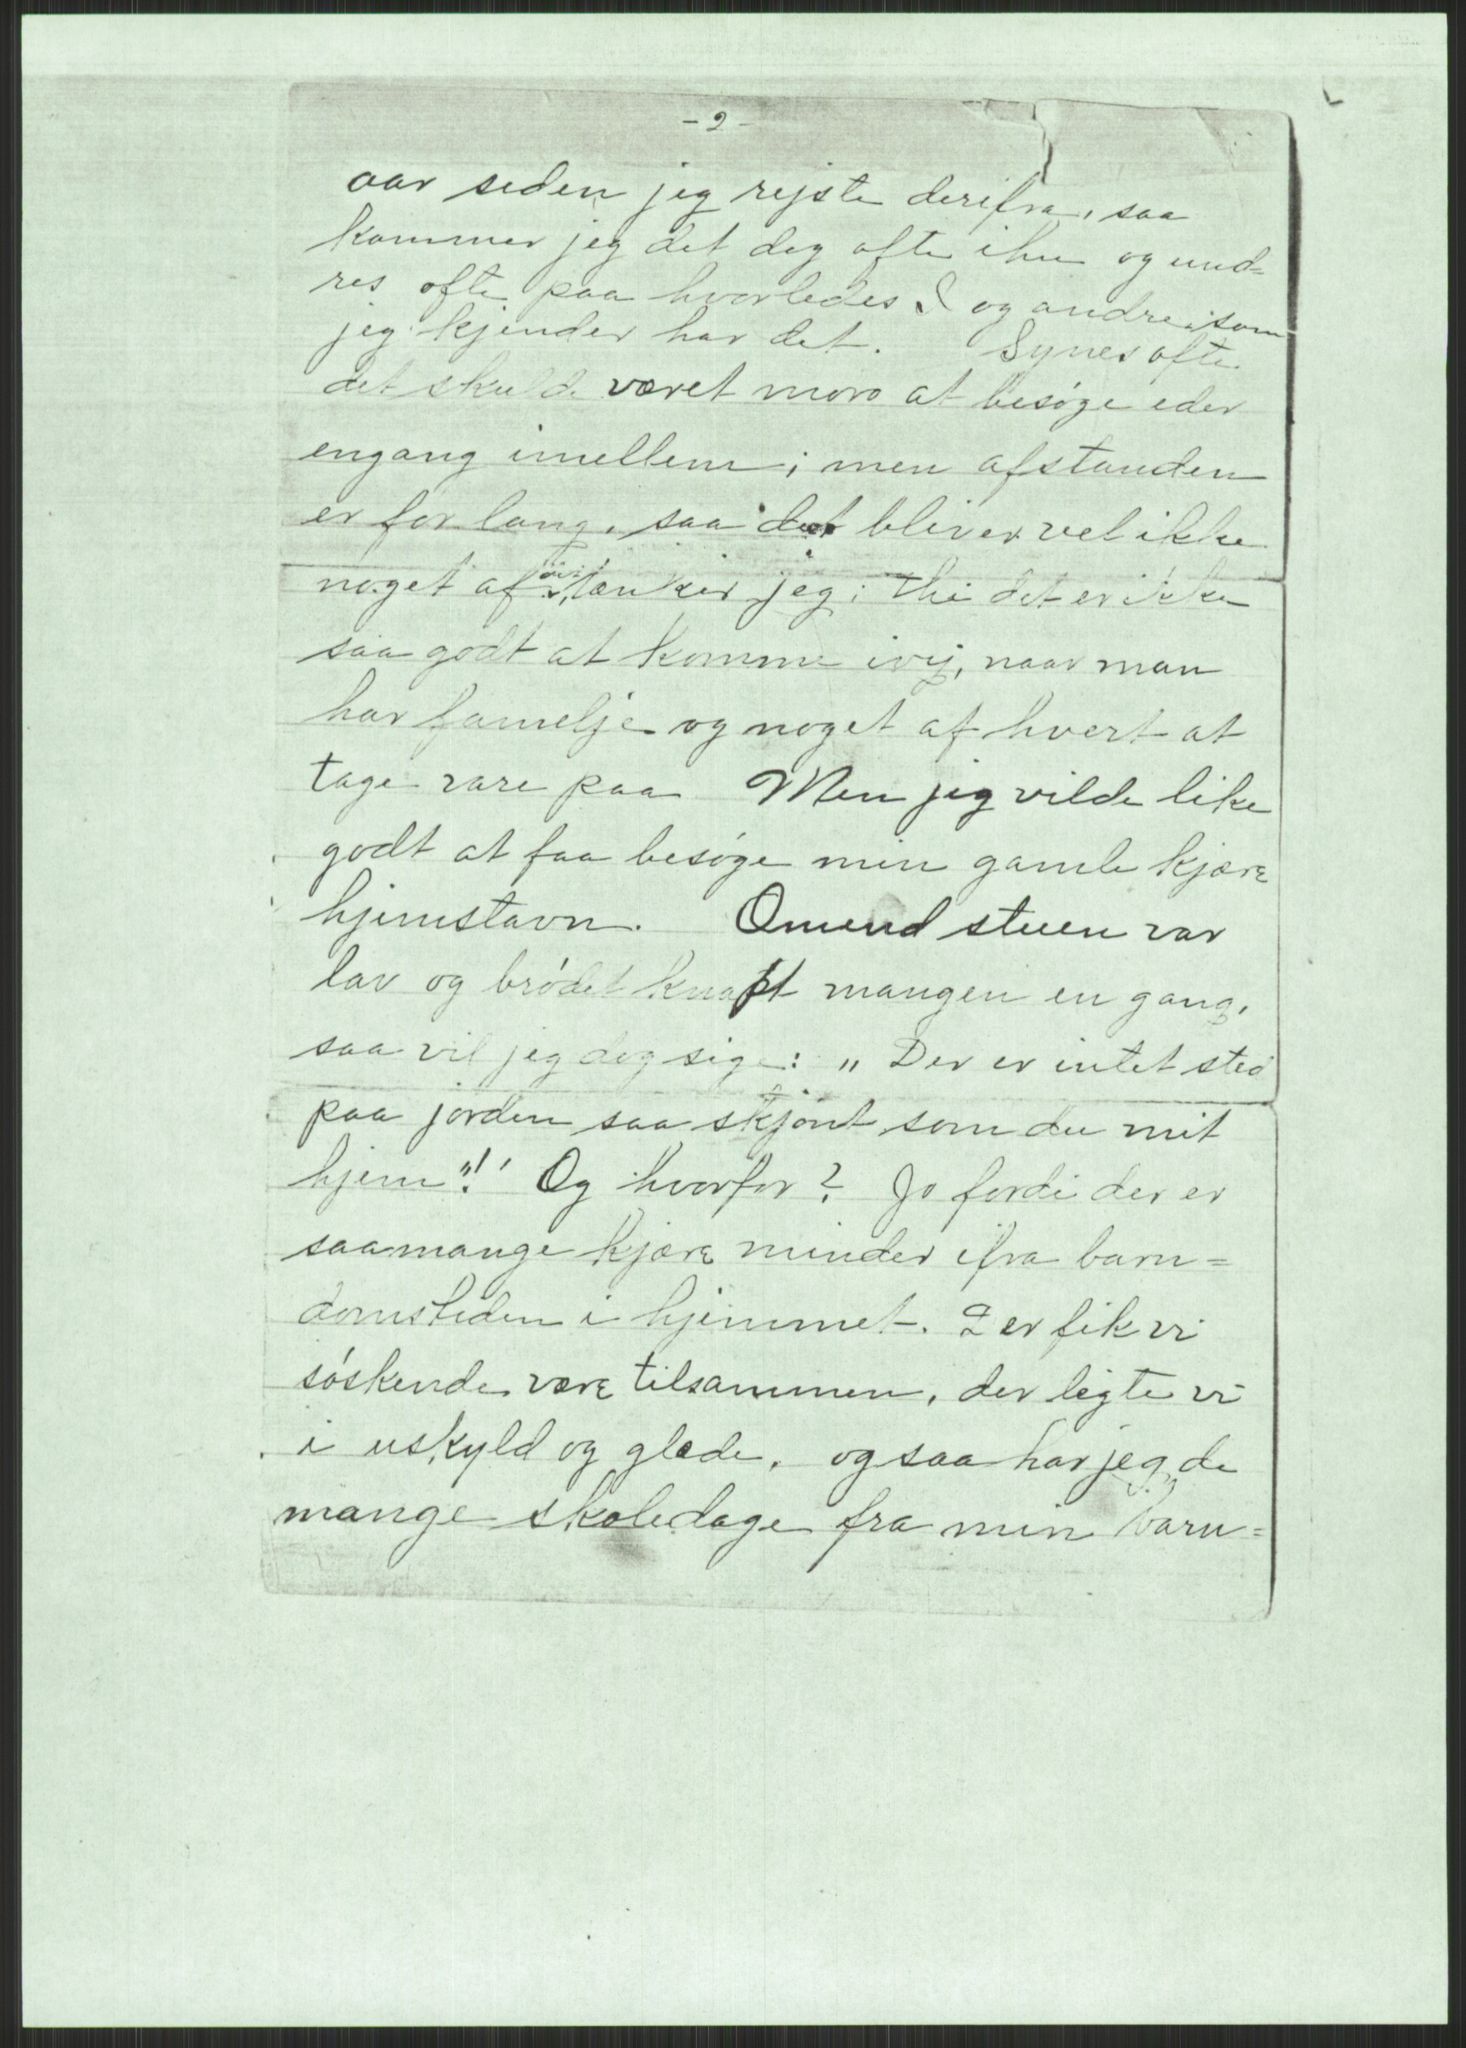 - 2 -
aar siden jeg rejste derifra, saa
kommer jeg det dog ofte ihu og und=
res ofte paa hvorledes I og andre som
jeg kjender har det. Synes ofte
det skuld. været moro at besøge eder
engang imellem; men afstanden
er for lang, saa det bliver vel ikke
noget af tænker jeg; thi det er ikke
saa godt at komme ivej, naar man
har familje og noget af hvert at
tage vare paa Men jeg vilde like
godt at faa besøge min gamle kjære
hjemstavn. Omend stuen var
lav og brødet knapt mangen en gang,
saa vil jeg dog sige: „ Der er intet sted
paa jorden saa skjønt som du mit
hjem"!' Og hvorfor? Jo fordi der er
saamange kjære minder ifra barn=
domstiden i hjemmet. Der fik vi
søskende være tilsammen, der legte vi
i uskyld og glæde, og saa har jeg de
mange skoledage fra min barn=